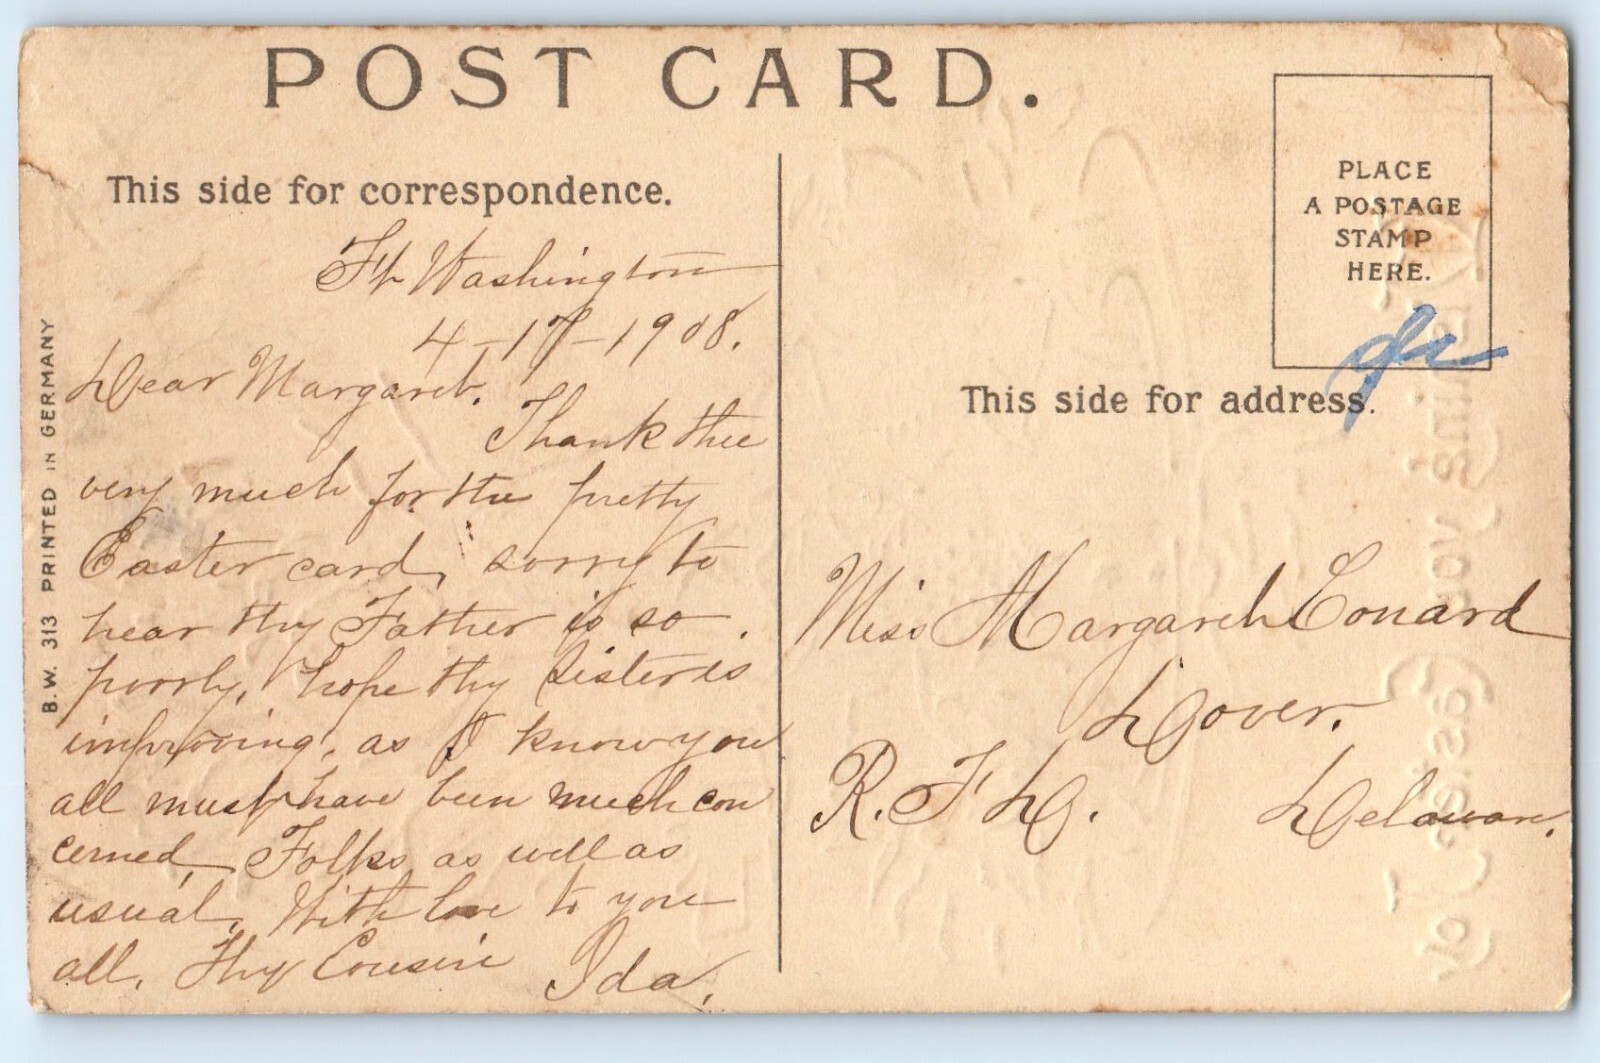 POST CARD.
This side for correspondence.
Ft Washington
4-17-1908.
Dear Margaret.
Thank thee
very much for the pretty
Easter card, sorry to
hear thy Father is so
poorly, hope thy Sister is
improving, as I know you
all must have been much con
cerned, Folks as well as
usual, With love to you
all. Thy Cousin Ida.
B.W. 313 PRINTED IN GERMANY
PLACE
A POSTAGE
STAMP
HERE.
This side for address.
Miss Margaret Conard
Dover.
R. F. D. Delaware.